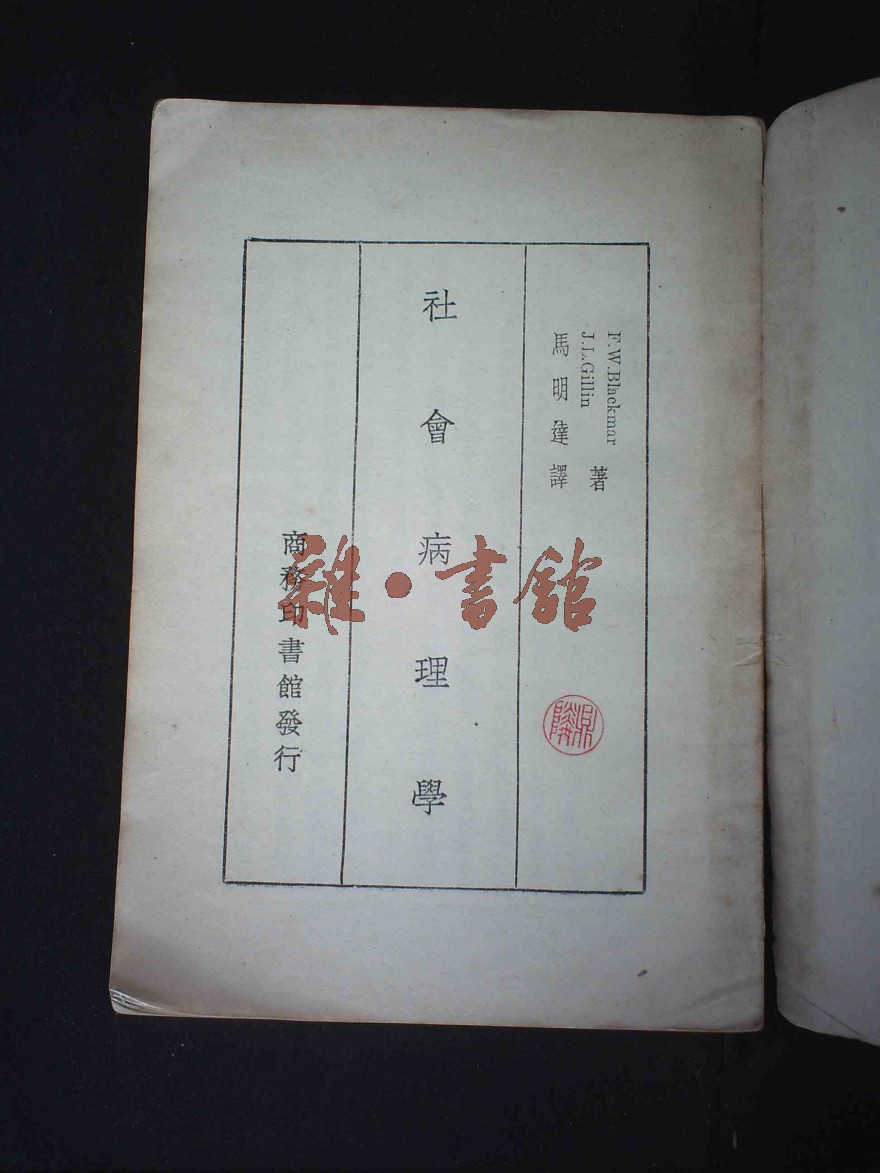 F.W.Blackmar
J.L.Gillin
著
馬明達譯
社會病理學
商務印書館發行
雜·書館